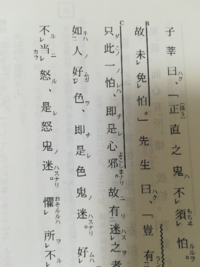 子莘曰、「正直之鬼不須怕。
故未免怕。」先生曰、「豈有
只此一怕、即是心邪。故有迷之者
如人好色、即是色鬼迷。好
不当怒、是怒鬼迷。懼所不